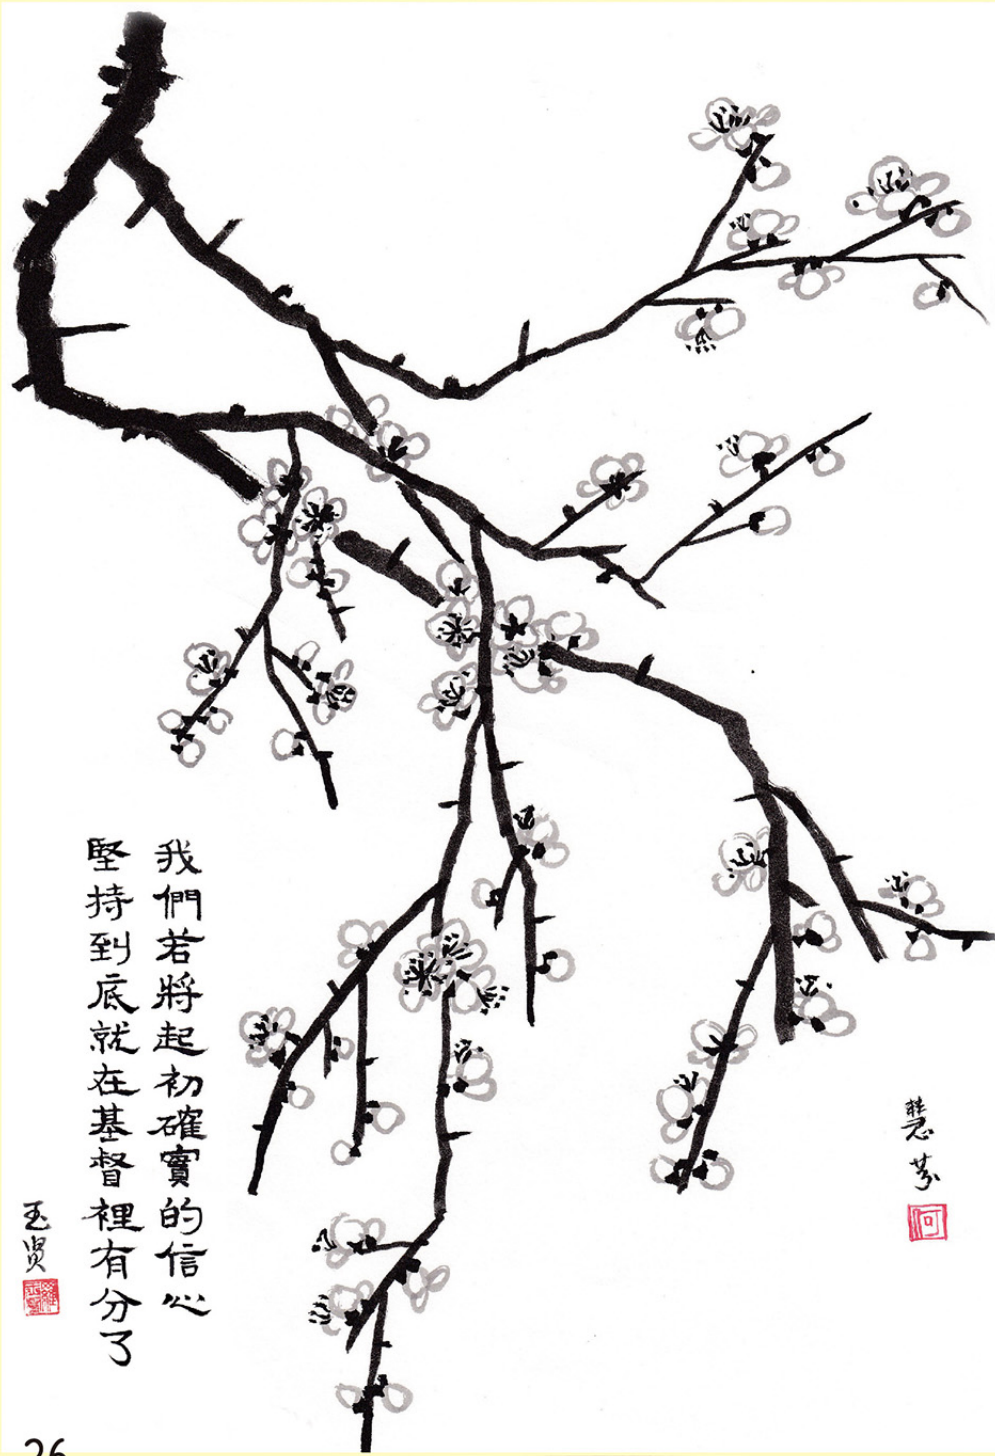 我們若將起初確實的信心
堅持到底就在基督裡有分了
玉賢
慧芬
何
26